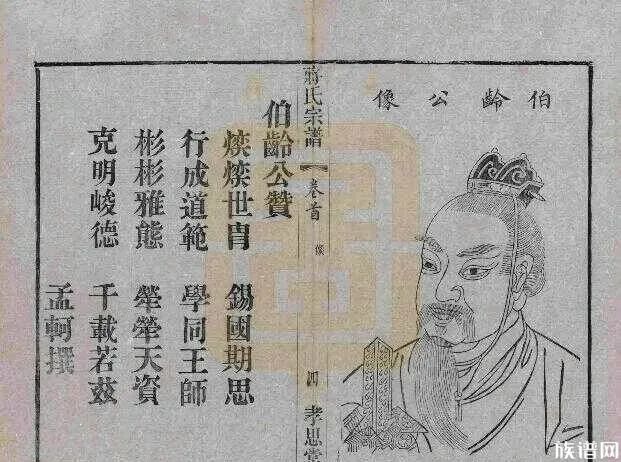 伯齡公像
蔣氏宗譜 卷首 像 四 孝思堂
伯齡公贊
世胄 錫國期思
行成道範 學同王師
彬彬雅態 犖犖天資
克明峻德 千載若茲
孟軻撰
族谱网